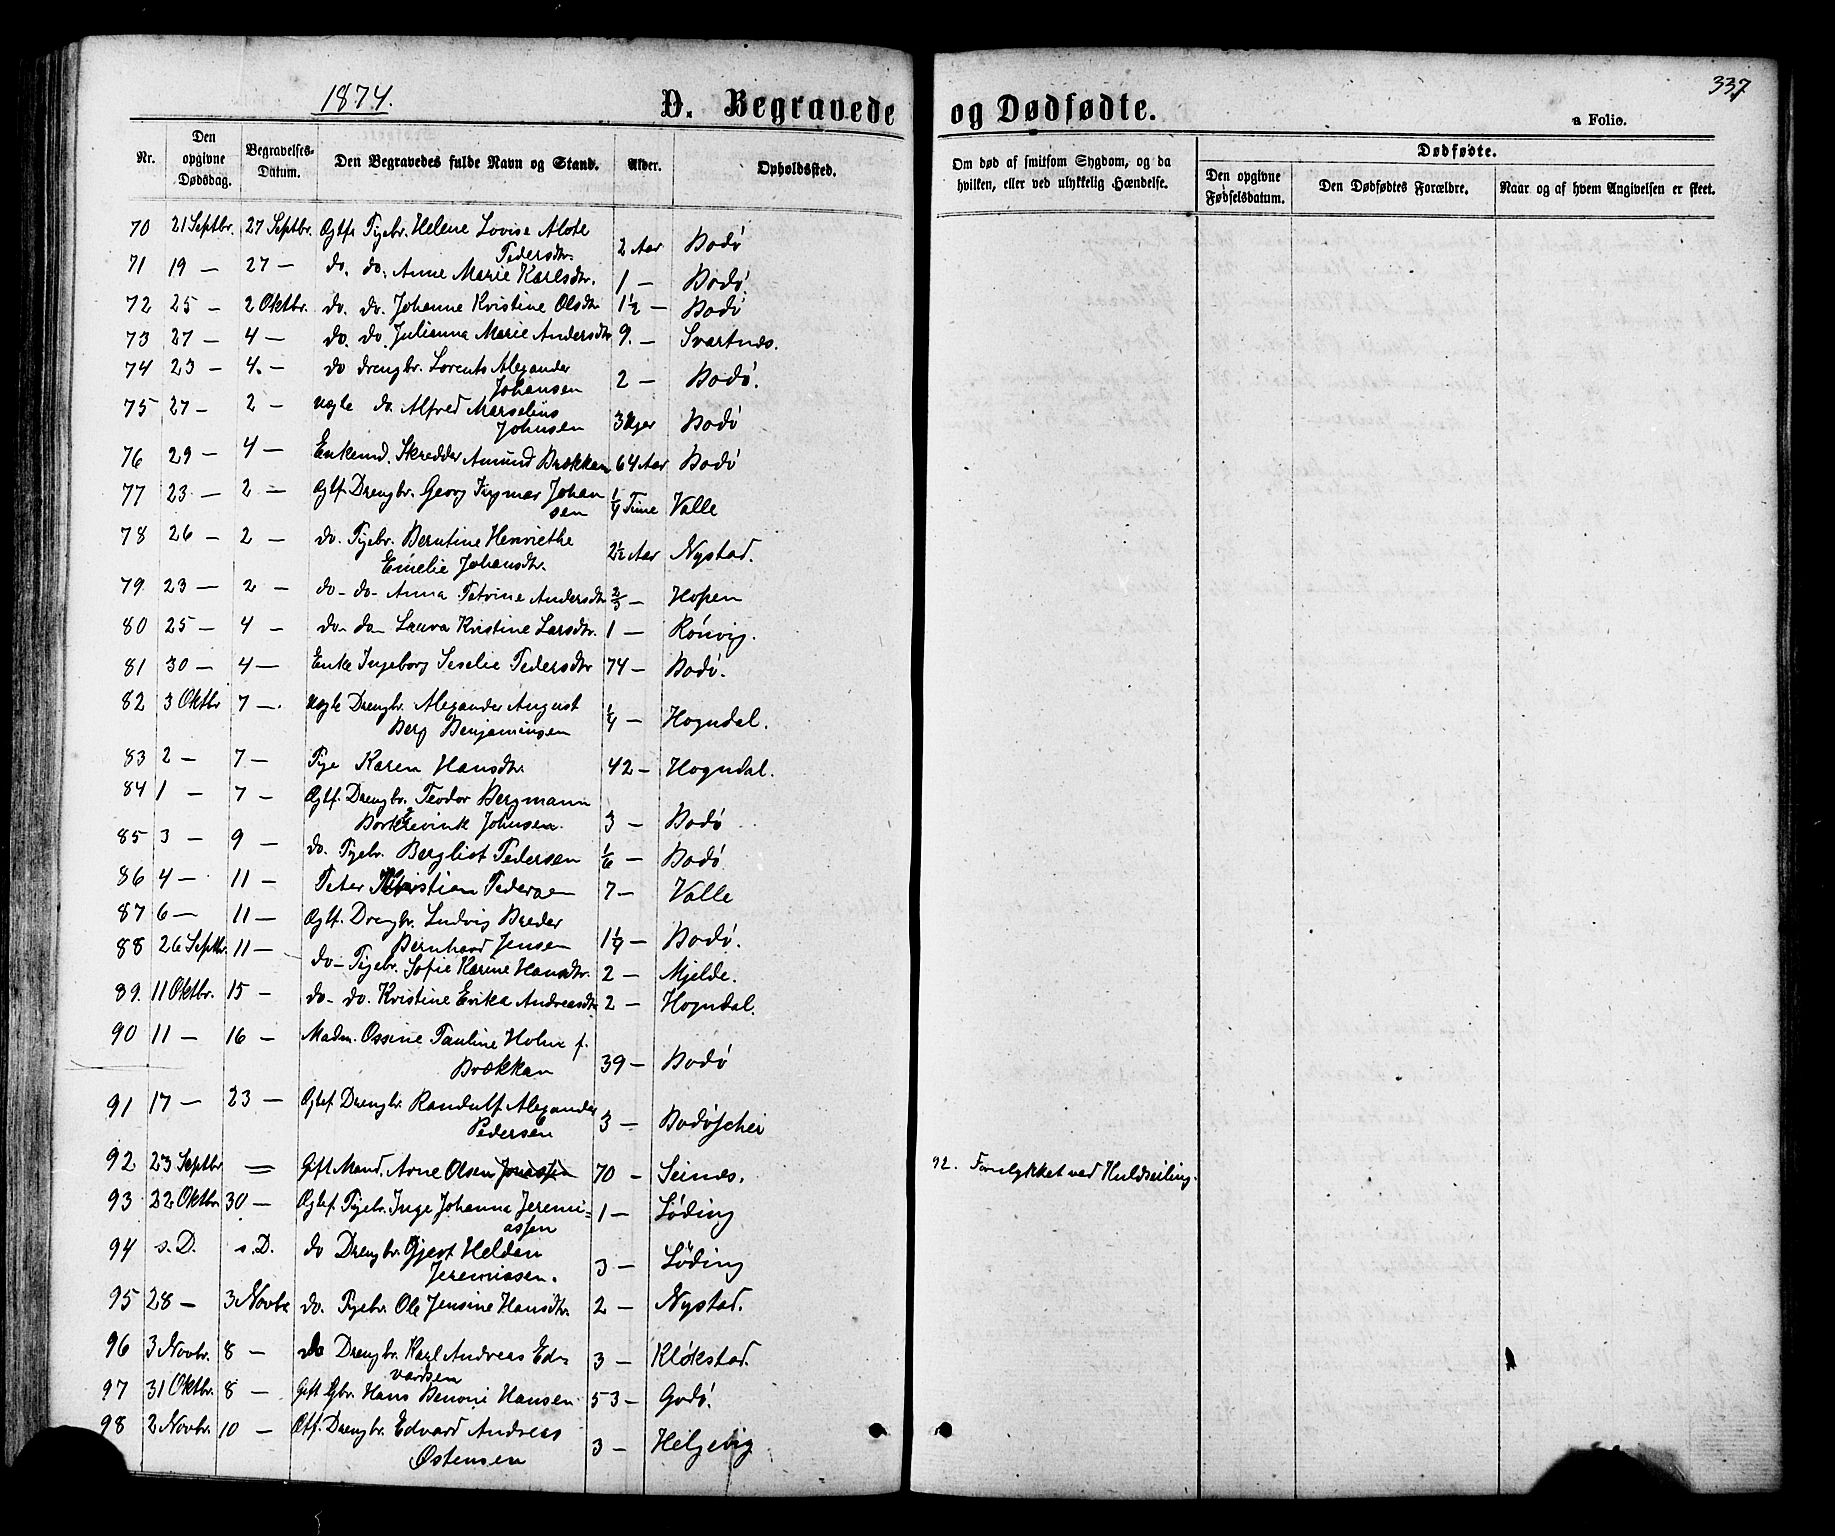 1874.
D. Begravede
og Dødfødte.
337
a Folio.
Nr.
Den opgivne Dødsdag.
Begravelses-Datum.
Den Begravedes fulde Navn og Stand.
Alder.
Opholdssted.
Om død af smitsom Sygdom, og da hvilken, eller ved ulykkelig Hændelse.
Dødfødte.
Den opgivne Fødselsdatum.
Den Dødfødtes Forældre.
Naar og af hvem Angivelsen er skeet.
70 21 Septbr. 27 Septbr. Ægtf. Pigebr. Helene Lovise
Pedersdtr. 2 Aar Bodö
71 19 — 27 — do. do. Anne Marie Karlsdtr. 1 — Bodö
72 25 — 2 Oktbr. do. do. Johanne Kristine Olsdtr 1½ — Bodö
73 27 — 4 — do. do. Julianna Marie Andersdtr 9. — Svartnes.
74 23 — 4. — do drengbr. Lorents Alexander
Johansen 2 — Bodö.
75 27 — 2 — uægte do. Alfred Marselius
Johnsen 3 Uger Bodö
76 29 — 4 — Enkemd. Skredder Amund Brækkan 64 Aar Bodö
77 23 — 2 — Ægtf. Drengbr. Georg Ingmar Johan
sen ¼ Time Valle
78 26 — 2 — do. Pigebr. Berntine Henriethe
Emelie Johansdtr. 2½ Aar Nystad.
79 23 — 2 — do — do — Anna Petrine Andersdtr ⅔ — Hopen
80 25 — 4 — do — do — Laura Kristine Larsdtr. 1 — Rönvig.
81 30 — 4 — Enke Ingeborg Seselie Pedersdtr 74 — Bodö.
82 3 Oktbr 7 — uægte Drengbr. Alexander August
Berg Benjaminsen ¼ — Hogndal.
83 2 — 7 — Pige Karen Hansdtr. 42 — Hogndal.
84 1 — 7 — Ægtf. Drengbr. Teodor Bergmann
Johnsen. 3 — Bodö
85 3 — 9 — do. Pigebr. Bergliot Pedersen ⅙ — Bodö
86 4 — 11 — Peter Kristian Pedersen 7 — Valle
87 6 — 11 — Ægtf. Drengbr. Ludvig Breder
Bernhard Jensen 1¼ — Bodö.
88 26 Septbr. 11 — do — Pigebr. Sofie Karine Hansdtr. 2 — Mjelde.
89. 11 Oktbr. 15 — do — do. Kristine Erika Andreasdtr 2 — Hogndal.
90 11 — 16 — Madm. Ossine Pauline Holm f.
Brækkan 39 — Bodö
91 17 — 23 — Ægtef. Drengbr. Randulf Alexander
Pedersen 3 — Bodöscher
92 23 Septbr — Gift Mand. Arne Olsen 70 — Seines.
92. Forulykket ved Kuldseiling.
93 22 Oktbr. 30 — Ægtef. Pigebr. Inge Johanna Jeremi=
assen 1 — Löding
94 s. D. s. D. do Drengbr. Gjert Heldan
Jeremiasen. 3 — Löding
95 28 — 3 Novbr do. Pigebr. Ole Jensine Hansdtr. 2 — Nystad.
96 3 Novbr. 8 — do Drengbr. Karl Andreas Ed=
vardsen 3 — Klökstad.
97 31 Oktbr. 8 — Gift Gbr. Hans Benoni Hansen 53 — Godö.
98 2 Novbr. 10 — Ætf. Drengbr. Edvard Andreas
Østensen 3 — Heljevig